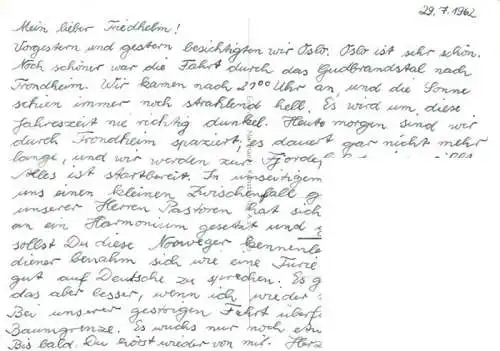 29.7.1962
Mein lieber Friedhelm!
Vorgestern und gestern besichtigten wir Oslo. Oslo ist sehr schön.
Noch schöner war die Fahrt durch das Gudbrandstal nach
Trondheim. Wir kamen nach 21⁰⁰ Uhr an, und die Sonne
schien immer noch strahlend hell. Es wird um diese
Jahreszeit nie richtig dunkel. Heute morgen sind wir
durch Trondheim spaziert, es dauert gar nicht mehr
lange, und wir werden zur Fjorde
Alles ist startbereit. In
uns einen kleinen Zwischenfall g
unserer Herren Pastoren hat sich
an ein Harmonium gesetzt und
sollst Du diese Norweger kennenle
diener benahm sich wie eine Furie
gut auf Deutsche zu sprechen. Es g
das aber besser, wenn ich wieder
Bei unserer gestrigen Fahrt überf
Baumgrenze. Es wuchs nur noch
Bis bald. Du hörst wieder von mir. Herz